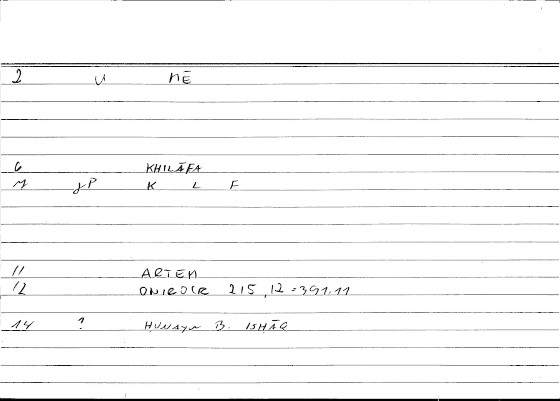 2 U MĒ
6 KHILĀFA
M γP K L F
11 ARTEM
12 ONIROCR 215,12=391.11
14 ? HUNAYN B. ISHĀQ